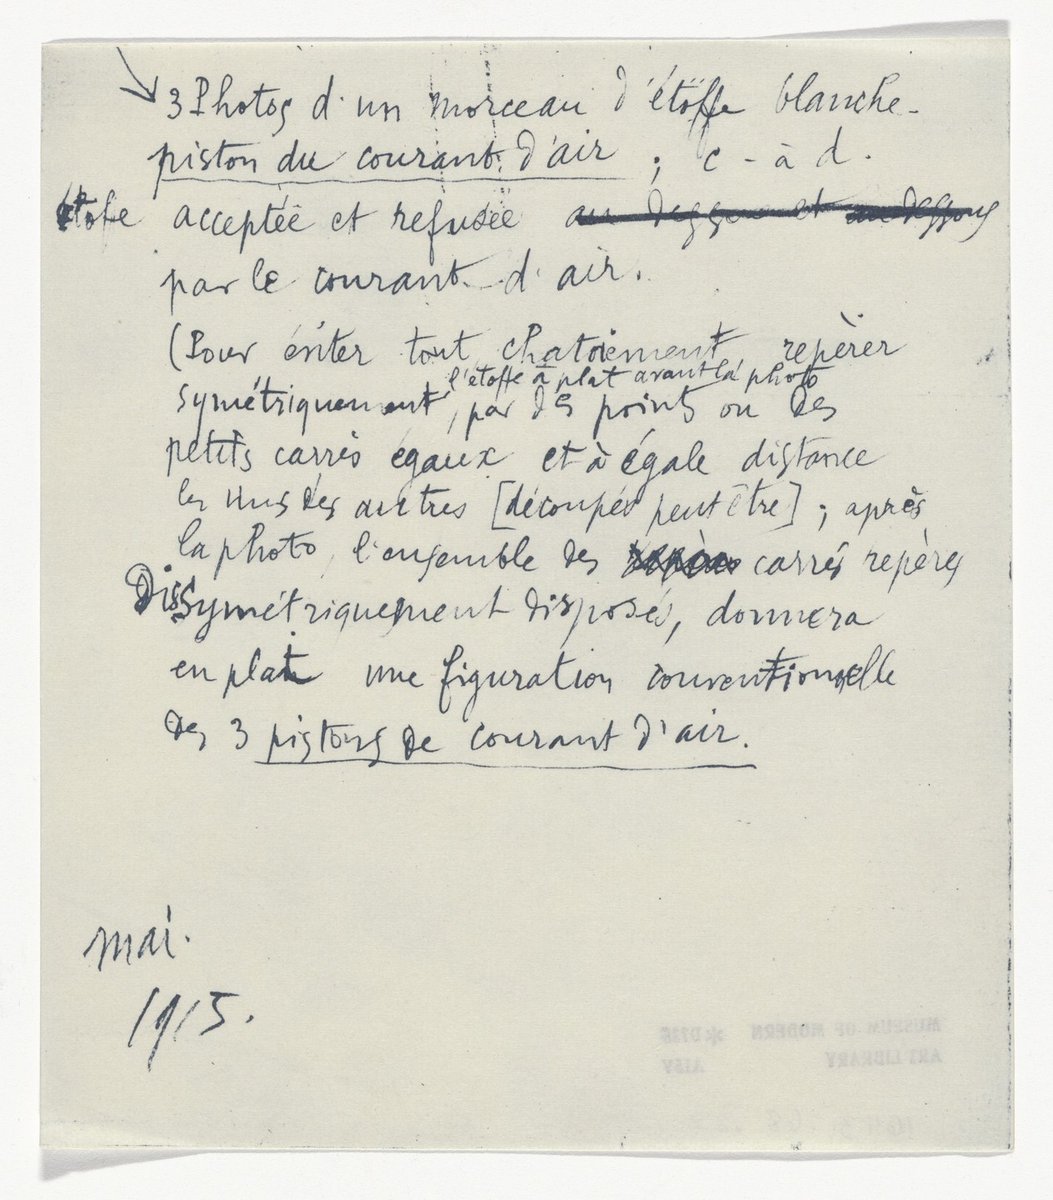 3 Photos d'un morceau d'étoffe blanche -
piston du courant d'air ; c - à d.
étoffe acceptée et refusée au dessus et au dessous
par le courant d'air.
(Pour éviter tout chatoiement repèrer
l'étoffe à plat avant la photo
symétriquement, par des points ou des
petits carrés égaux et à égale distance
les uns des autres [découpés peut être] ; après
la photo, l'ensemble des carrés repères
Dissymétriquement disposés, donnera
en plat une figuration conventionnelle
des 3 pistons de courant d'air.
mai.
1915.
MUSEUM OF MODERN
ART LIBRARY